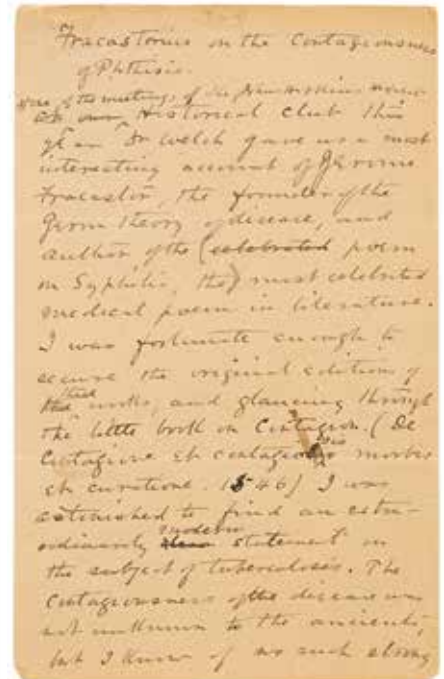 Fracastorius on the Contagiousness
of Phthisis.
of the meetings of the Johns Hopkins
At our Historical Club this
year Dr Welch gave us a most
interesting account of Jerome
Fracastor, the founder of the
Germ theory of disease, and
author of the (celebrated poem
on Syphilis, the) most celebrated
medical poem in literature.
I was fortunate enough to
secure the original editions of
works, and glancing through
the little book on Contagion. (De
Contagione et contagiosis morbis
et curatione. 1546) I was
astonished to find an extra-
ordinarily modern statement on
the subject of tuberculosis. The
Contagiousness of the disease was
not unknown to the ancients,
but I know of no such strong